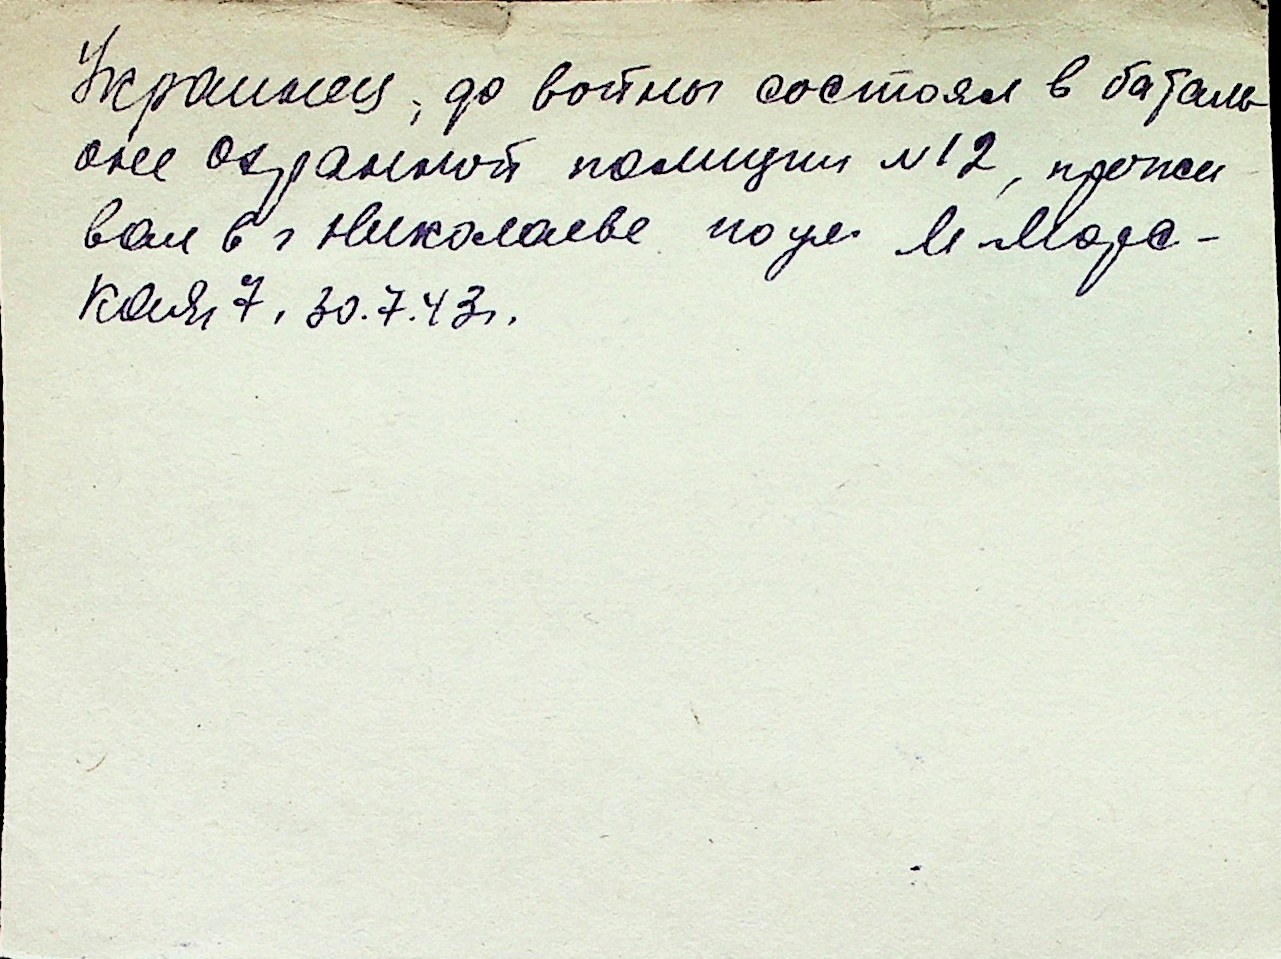 Украинец, до войны состоял в баталь
оне охранной полиции №12, прожи
вал в г Николаеве по ул. М-Морс-
кая, 7, 30.7.43г.